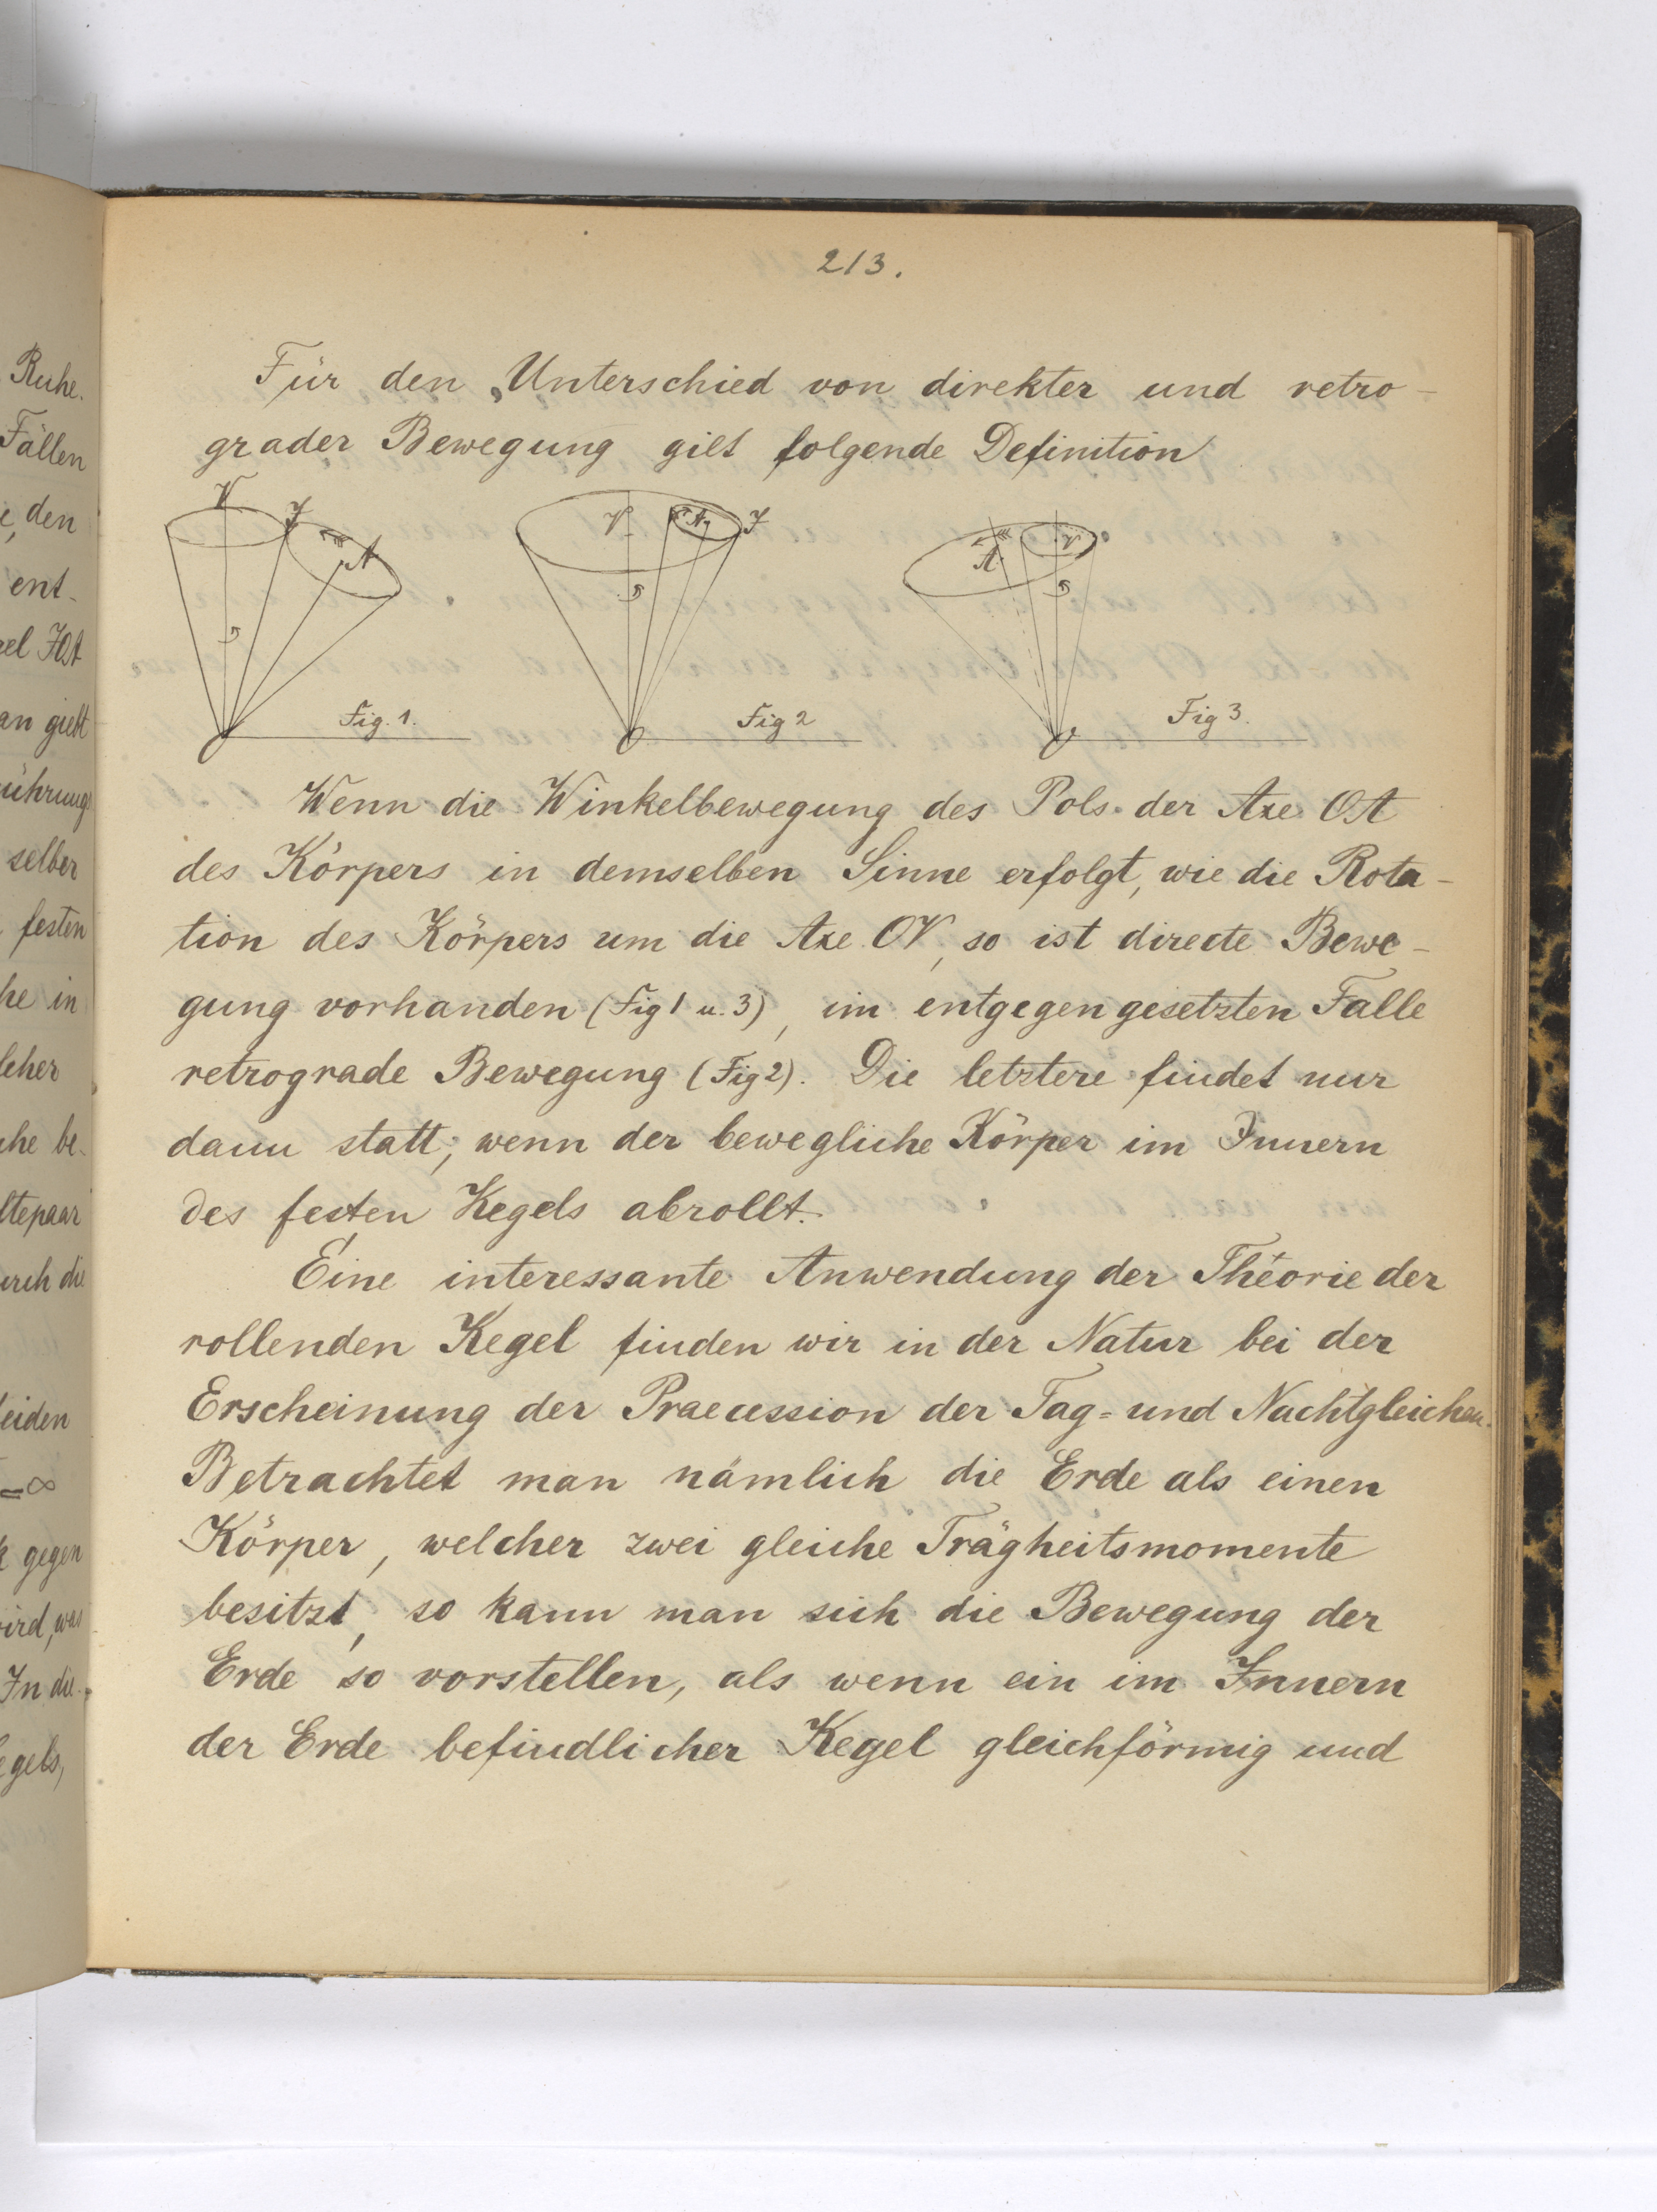 213.
Für den Unterschied von direkter und retro-
grader Bewegung gilt folgende Definition
V J A
V A J
A V
Fig. 1.
Fig 2
Fig 3.
O O O
Wenn die Winkelbewegung des Pols der Axe OA
des Körpers in demselben Sinne erfolgt, wie die Rota-
tion des Körpers um die Axe OV, so ist directe Bewe-
gung vorhanden (Fig 1 u. 3), im entgegengesetzten Falle
retrograde Bewegung (Fig 2). Die letztere findet nur
dann statt, wenn der bewegliche Körper im Innern
des festen Kegels abrollt.
Eine interessante Anwendung der Theorie der
rollenden Kegel finden wir in der Natur bei der
Erscheinung der Praecession der Tag- und Nachtgleichen.
Betrachtet man nämlich die Erde als einen
Körper, welcher zwei gleiche Trägheitsmomente
besitzt, so kann man sich die Bewegung der
Erde so vorstellen, als wenn ein im Innern
der Erde befindlicher Kegel gleichförmig und
Ruhe.
Fällen
den
ent-
JOA
giebt
selber
festen
he in
he be-
=∞
gegen
wird, was
In die-